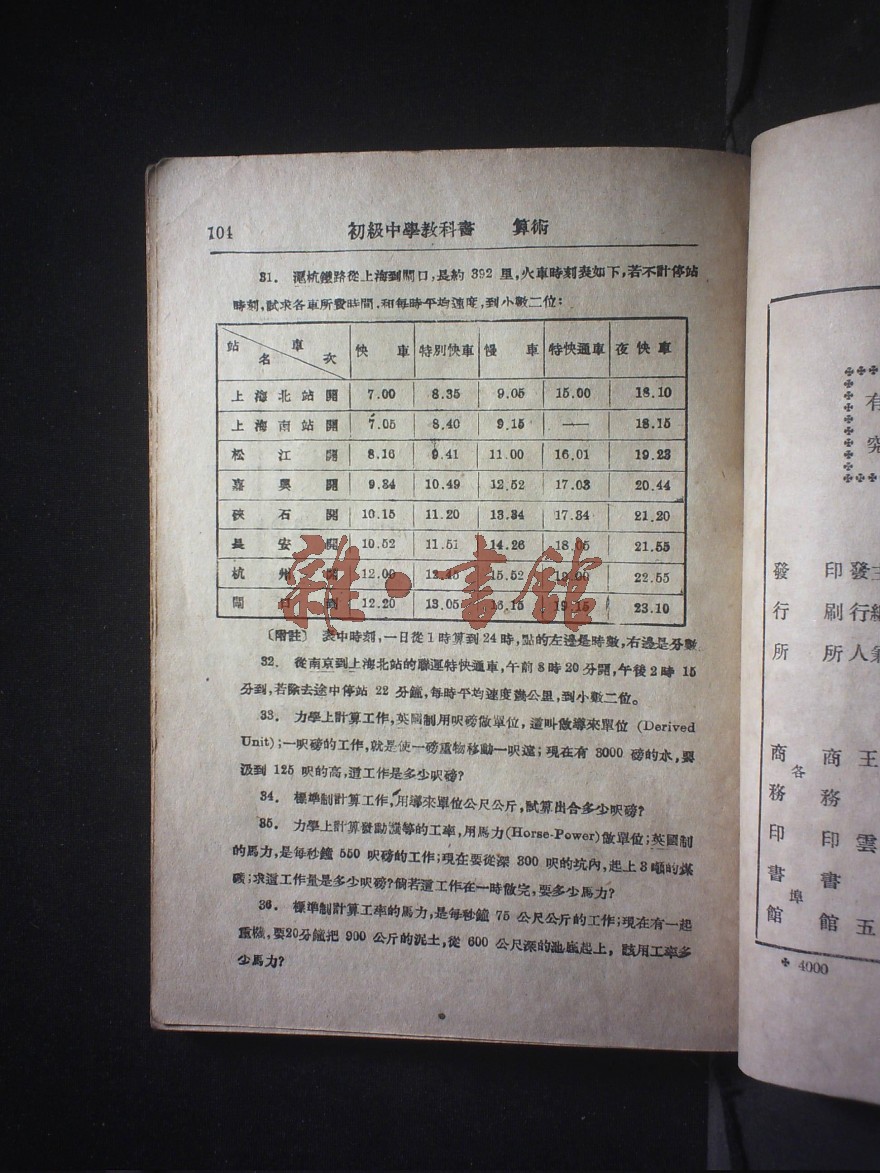 104 初級中學教科書 算術
31. 滬杭鐵路從上海到閘口,長約 392 里,火車時刻表如下,若不計停站
時刻,試求各車所費時間,和每時平均速度,到小數二位:
站名 車次 快車 特別快車 慢車 特快通車 夜快車
上海北站開 7.00 8.35 9.05 15.00 18.10
上海南站開 7.05 8.40 9.15 —— 18.15
松江開 8.16 9.41 11.00 16.01 19.23
嘉興開 9.34 10.49 12.52 17.03 20.44
硤石開 10.15 11.20 13.34 17.34 21.20
長安開 10.52 11.51 14.26 18.05 21.55
杭州開 12.00 12.45 15.52 19.00 22.55
閘口到 12.20 13.05 16.15 19.15 23.10
雜·書館
〔附註〕 表中時刻,一日從1時算到24時,點的左邊是時數,右邊是分數
32. 從南京到上海北站的聯運特快通車,午前8時20分開,午後2時 15
分到,若除去途中停站 22 分鐘,每時平均速度幾公里,到小數二位。
33. 力學上計算工作,英國制用呎磅做單位,這叫做導來單位 (Derived
Unit);一呎磅的工作,就是使一磅重物移動一呎遠;現在有 3000 磅的水,要
汲到 125 呎的高,這工作是多少呎磅?
34. 標準制計算工作,用導來單位公尺公斤,試算出合多少呎磅?
35. 力學上計算發動機等的工率,用馬力(Horse-Power)做單位;英國制
的馬力,是每秒鐘 550 呎磅的工作;現在要從深 300 呎的坑內,起上3噸的煤
礦;求這工作量是多少呎磅?倘若這工作在一時做完,要多少馬力?
36. 標準制計算工率的馬力,是每秒鐘 75 公尺公斤的工作;現在有一起
重機,要20分鐘把 900 公斤的泥土,從 600 公尺深的池底起上, 該用工率多
少馬力?
有
究
發行所 商務印書館
各埠
印刷所 商務印書館
發行人 王雲五
4000